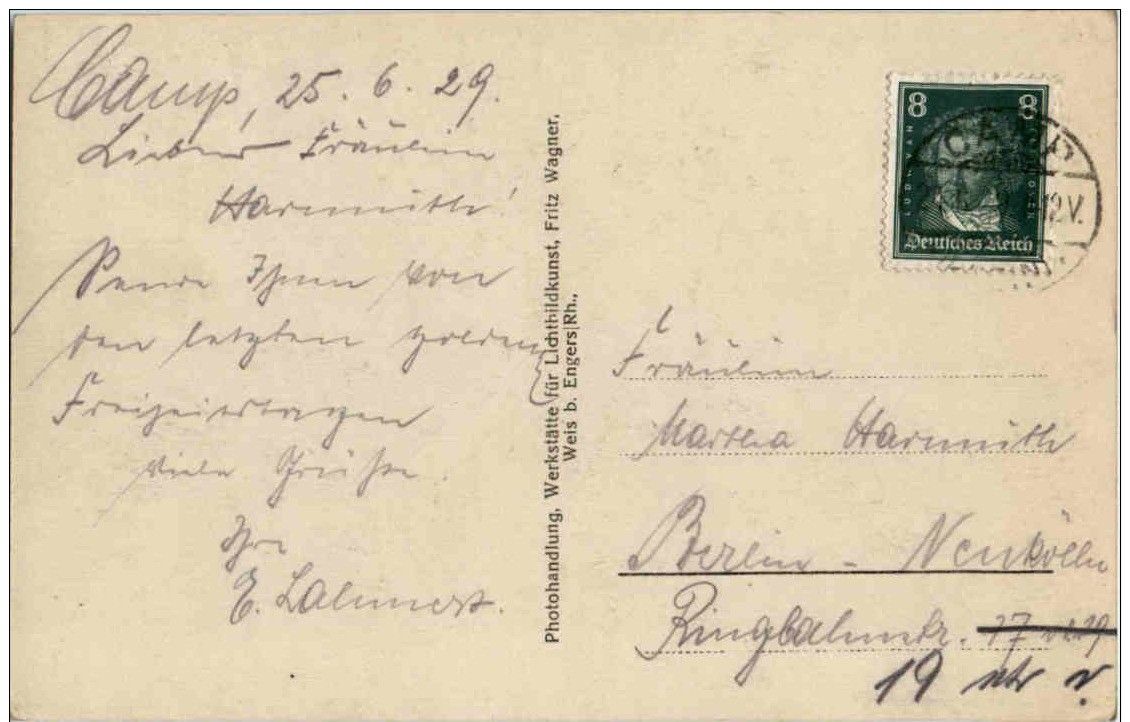 Camp, 25. 6. 29.
Liebes Fräulein
Harmuth!
Sende Ihnen von
den letzten goldenen
Freizeitstagen
viele Grüße.
Ihr
E. Lahmert.
Photohandlung, Werkstätte für Lichtbildkunst, Fritz Wagner,
Weis b. Engers|Rh.,
8 8
LUDWIG VAN BEETHOVEN
Deutsches Reich
12 V.
Fräulein
Martha Harmuth
Berlin - Neukölln
Ringbahnstr.
19